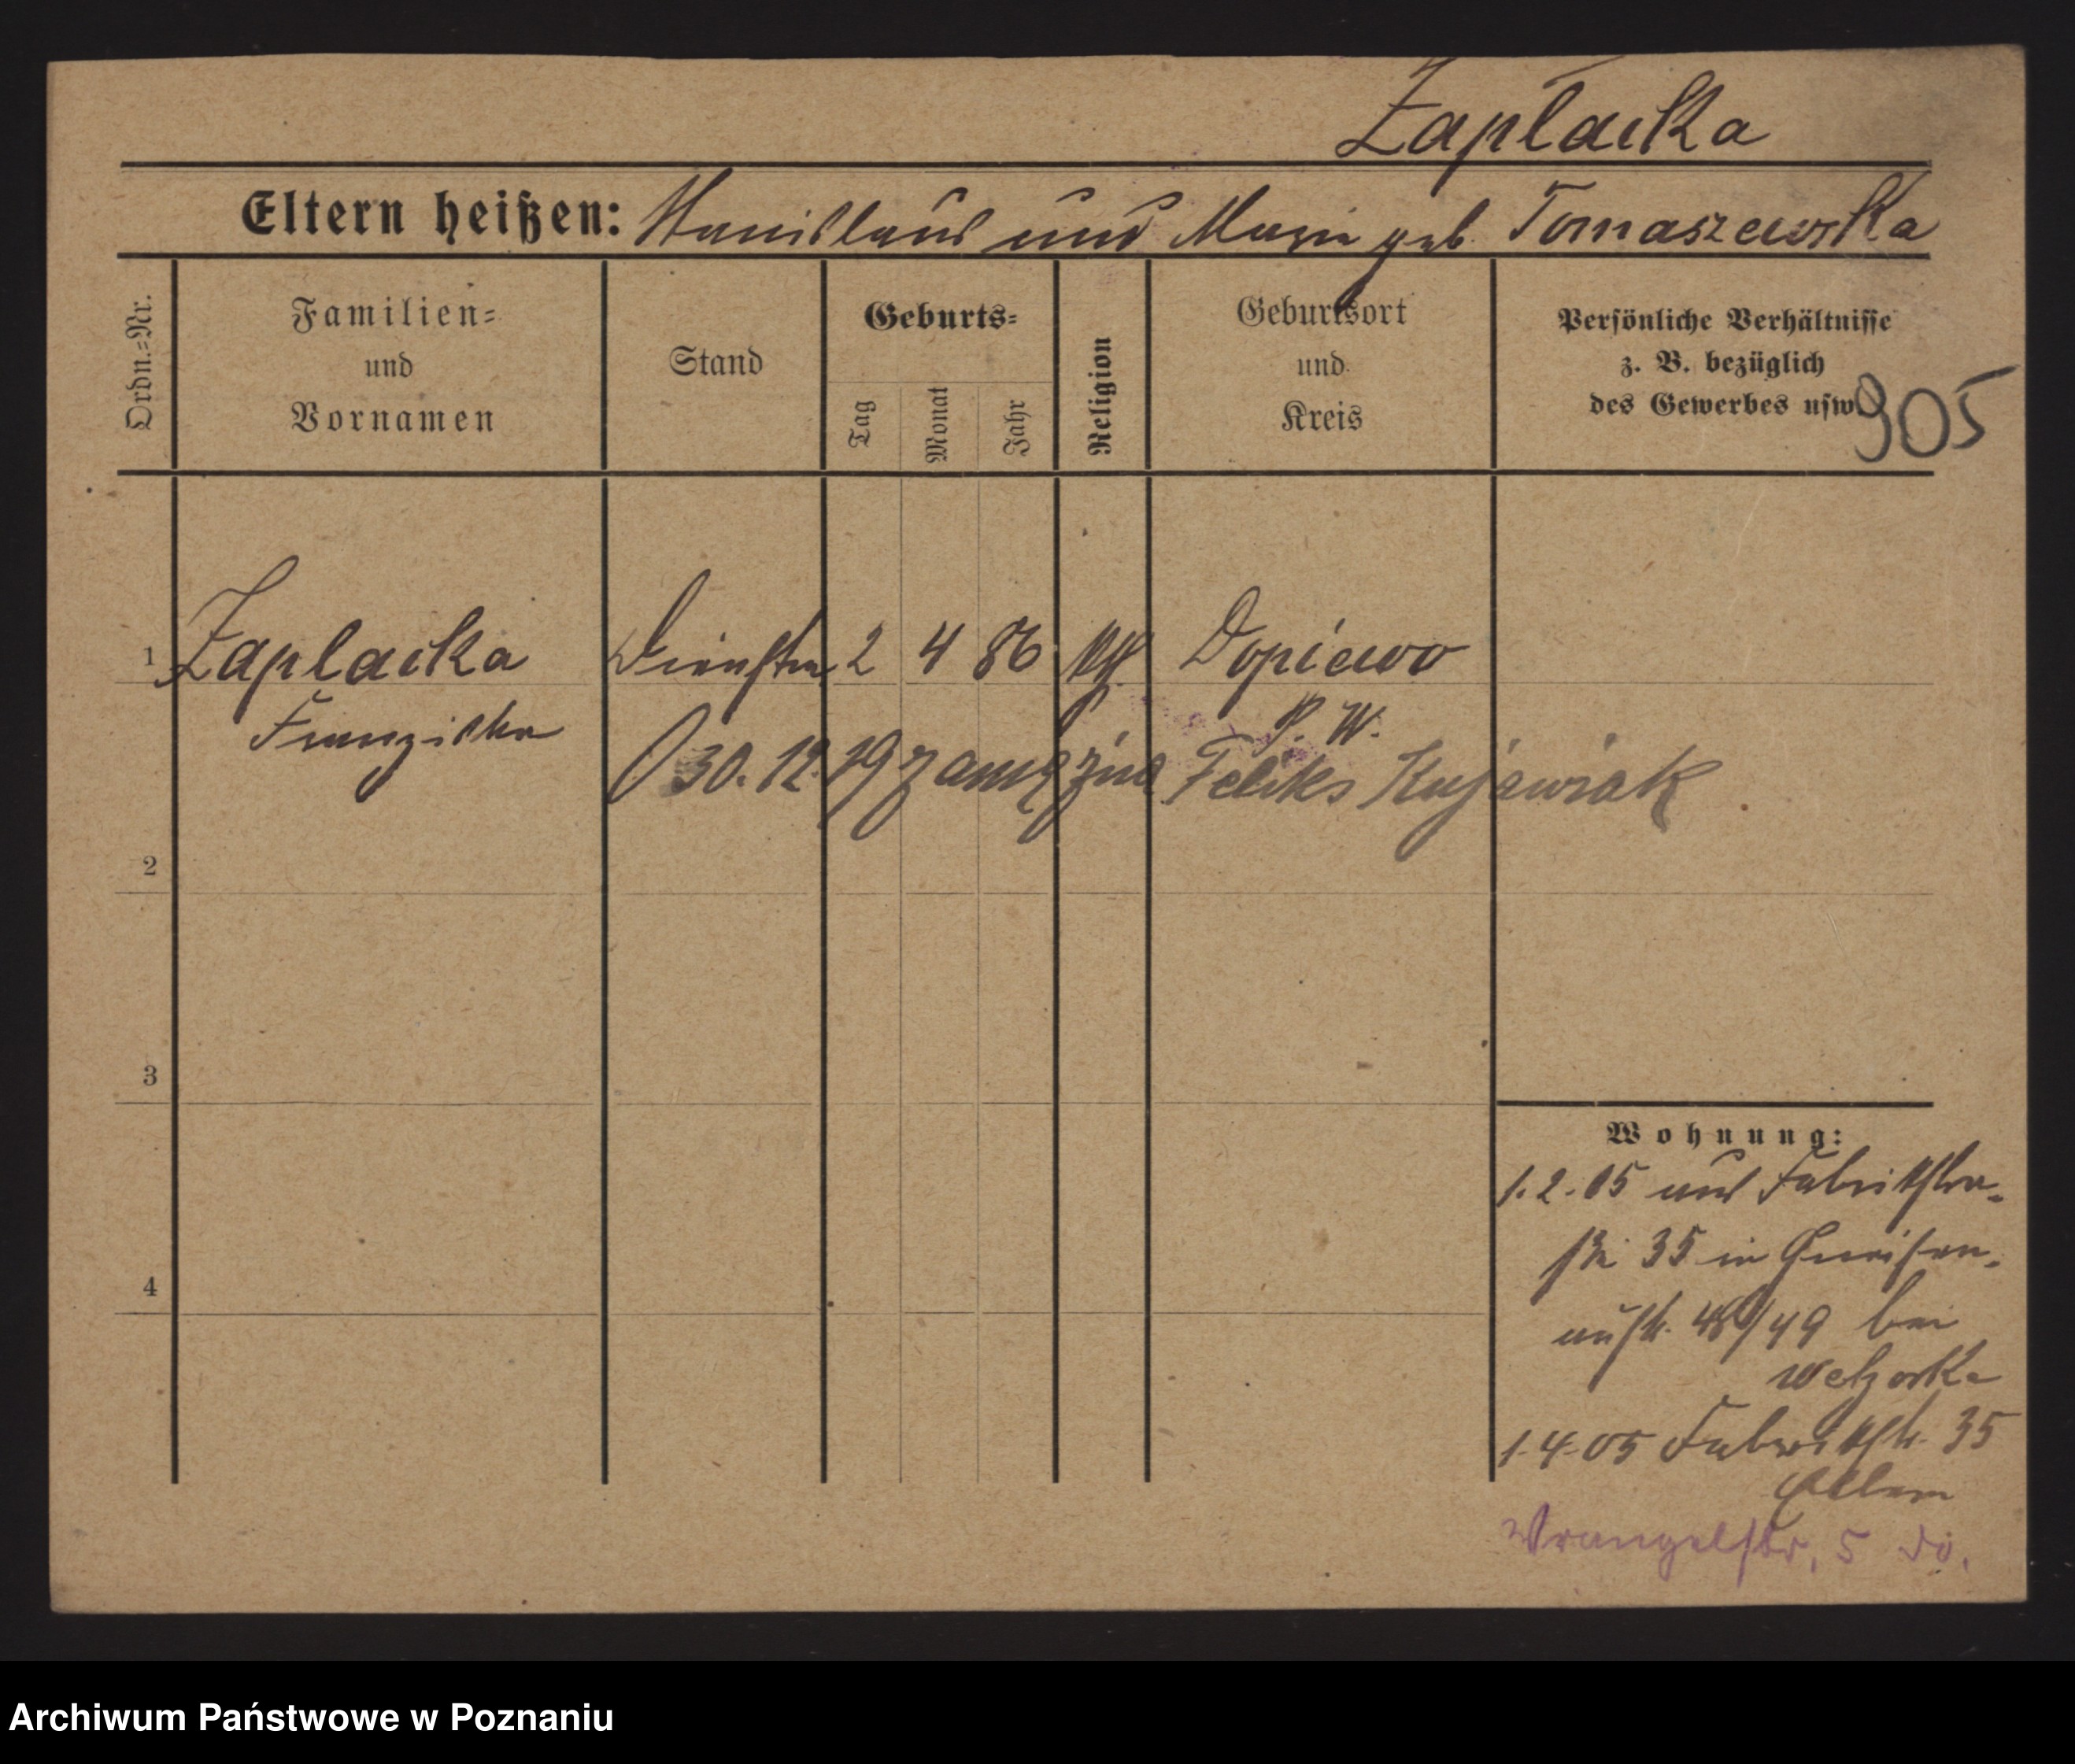 Zaplacka
Eltern heißen: Stanislaus und Marie geb. Tomaszewska
Ordn.=Nr.
Familien=
und
Vornamen
Stand
Geburts=
Tag
Monat
Jahr
Religion
Geburtsort
und
Kreis
Persönliche Verhältnisse
z. B. bezüglich
des Gewerbes usw.
905
1 Zaplacka 2 4 86 Dopiewo
Franziska P. W.
30. 12. 19 zamężna Feliks Kujawiak
2
3
4
Wohnung:
1.2.05 aus Fabrikstra-
ße 35 in Gneisen-
austr. 48/49 bei
1.4.05 Fabrikstr. 35
Eltern
Wrangelstr. 5 do.
Archiwum Państwowe w Poznaniu